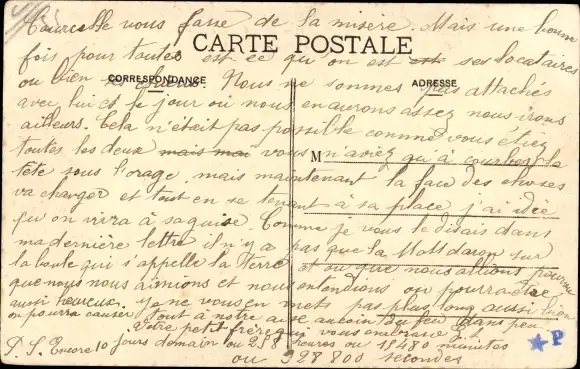 Tourcelle vous fasse de la misère. Mais une bonne
CARTE POSTALE
fois pour toutes est ce qu'on est ses locataires
CORRESPONDANCE
ADRESSE
ou bien ses chiens. Nous ne sommes pas attachés
avec lui et le jour où nous en aurons assez nous irons
ailleurs. Cela n'était pas possible comme vous étiez
toutes les deux mais moi vous n'aviez qu'à courber la
M
tête sous l'orage, mais maintenant la face des choses
va changer et tout en se tenant à sa place j'ai idée
qu'on vivra à sa guise. Comme je vous le disais dans
ma dernière lettre il n'y a pas que la sur
la boule qui s'appelle la Terre et où que nous allions pourvu
que nous nous aimions et nous entendions on pourra être
aussi heureux. Je ne vous en mets pas plus long aussi bien
on pourra causer tout à notre aise au coin du feu dans peu.
Votre petit frère qui vous embrasse
P.S. Encore 10 jours demain ou 288 heures ou 18480 minutes
ou 928800 secondes
P